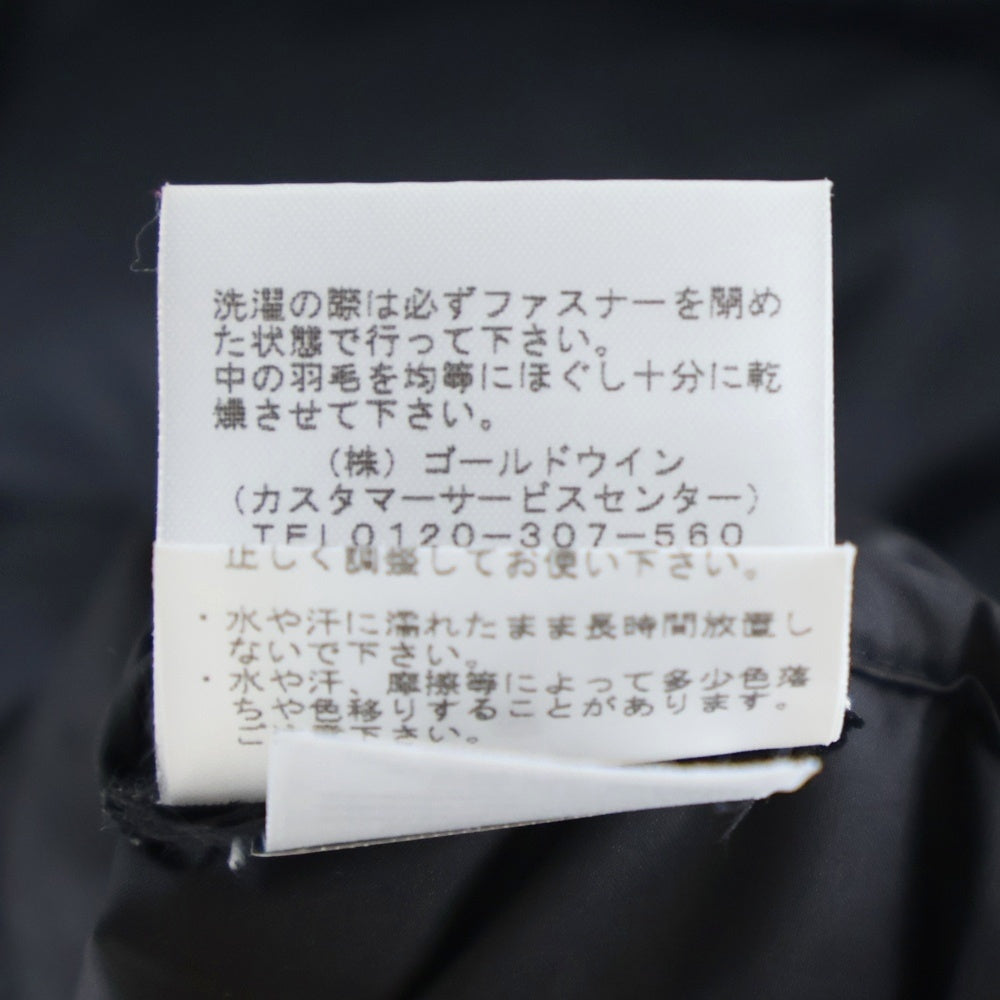 洗濯の際は必ずファスナーを閉め
た状態で行って下さい。
中の羽毛を均等にほぐし十分に乾
燥させて下さい。
(株)ゴールドウイン
(カスタマーサービスセンター)
TEL0120-307-560
正しく調整してお使い下さい。
・水や汗に濡れたまま長時間放置し
ないで下さい。
・水や汗、摩擦等によって多少色落
ちや色移りすることがあります。
ご 下さい。